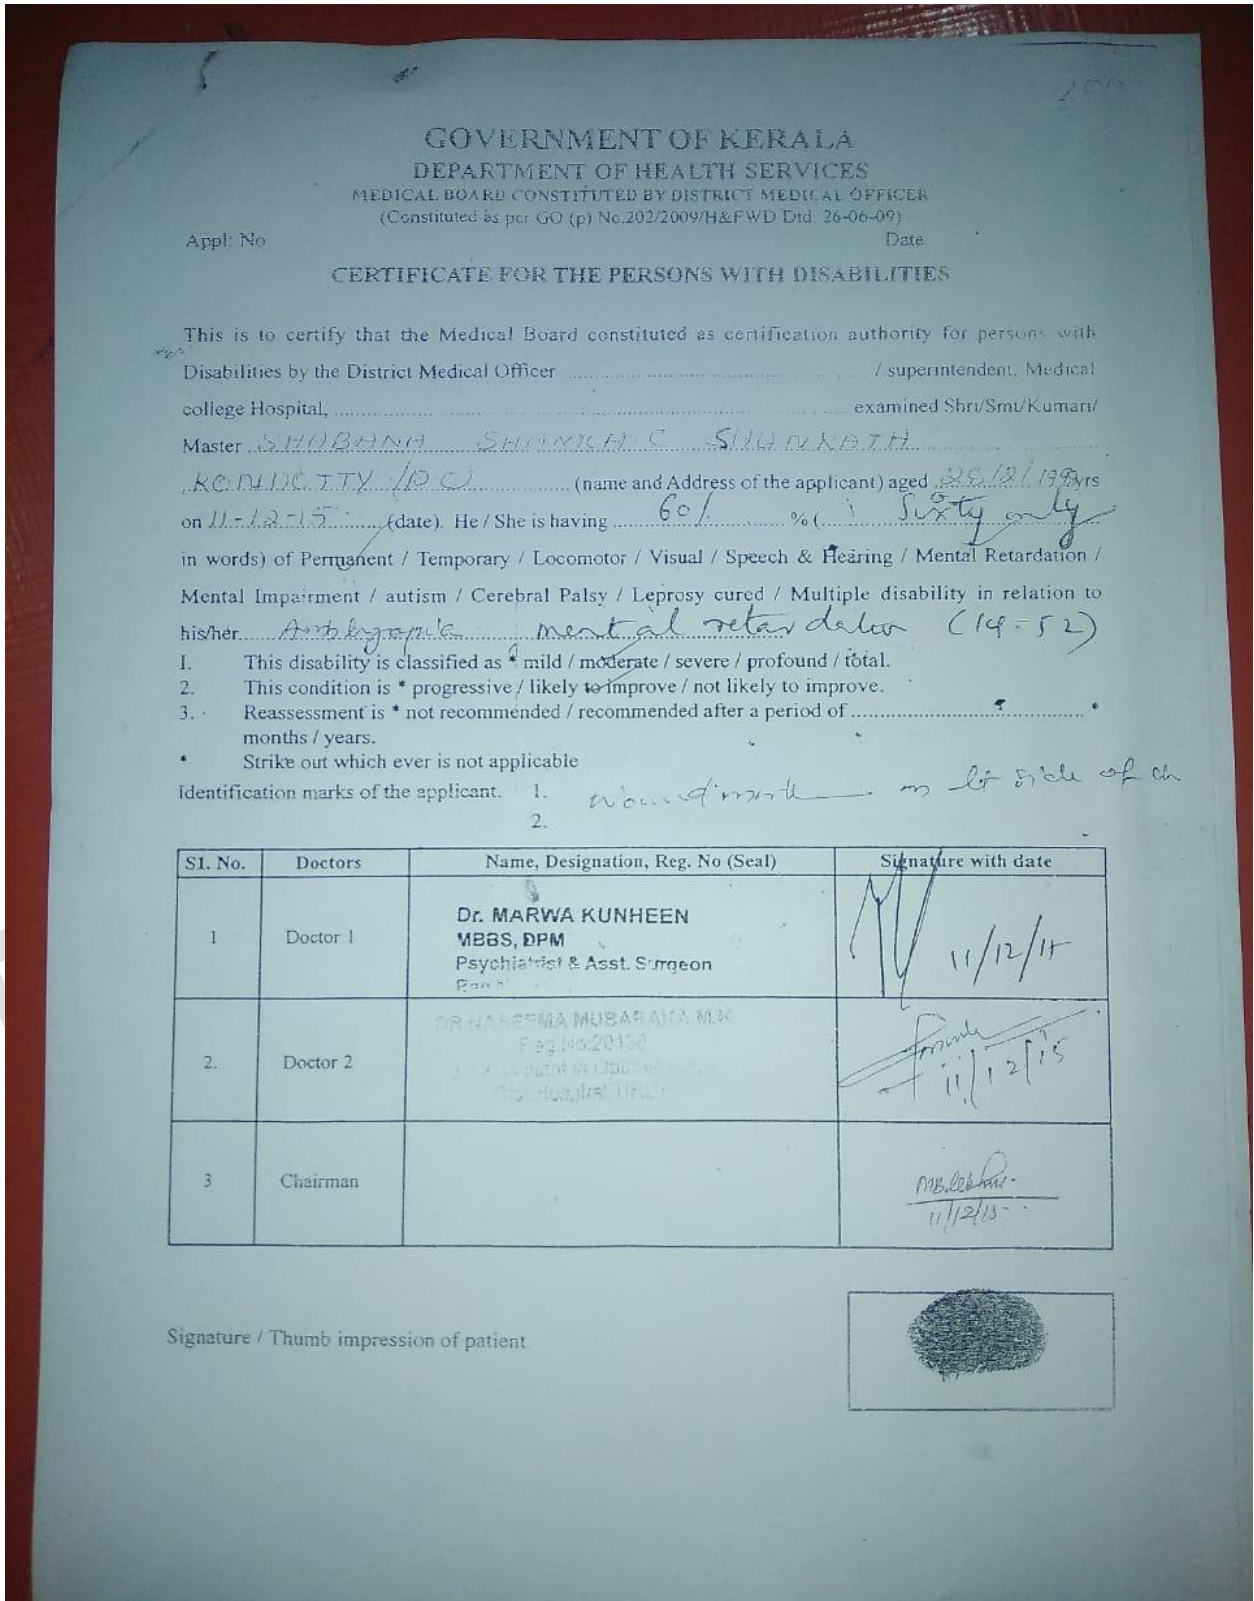 GOVERNMENT OF KERALA
DEPARTMENT OF HEALTH SERVICES
MEDICAL BOARD CONSTITUTED BY DISTRICT MEDICAL OFFICER
(Constituted as per GO (p) No.202/2009/H&FWD Dtd. 26-06-09)
Appl: No Date
CERTIFICATE FOR THE PERSONS WITH DISABILITIES
This is to certify that the Medical Board constituted as certification authority for persons with
Disabilities by the District Medical Officer ........................ / superintendent, Medical
college Hospital, ........................ examined Shri/Smt/Kumari/
Master SHABANA SHUNKATH
KONDOTTY (PO) (name and Address of the applicant) aged yrs
on 11-12-15 (date). He / She is having 60% %( Sixty only
in words) of Permanent / Temporary / Locomotor / Visual / Speech & Hearing / Mental Retardation /
Mental Impairment / autism / Cerebral Palsy / Leprosy cured / Multiple disability in relation to
his/her Amblyopia mental retardation (IQ-52)
1. This disability is classified as * mild / moderate / severe / profound / total.
2. This condition is * progressive / likely to improve / not likely to improve.
3. Reassessment is * not recommended / recommended after a period of ........................
months / years.
* Strike out which ever is not applicable
Identification marks of the applicant. 1. wound mark on lt side of
2.
S1. No. Doctors Name, Designation, Reg. No (Seal) Signature with date
1 Doctor 1 Dr. MARWA KUNHEEN
MBBS, DPM
Psychiatrist & Asst. Surgeon
11/12/15
2. Doctor 2 DR.HASEEMA MUBARAKA.M.K
Reg.No:20136
11/12/15
3 Chairman
11/12/15
Signature / Thumb impression of patient